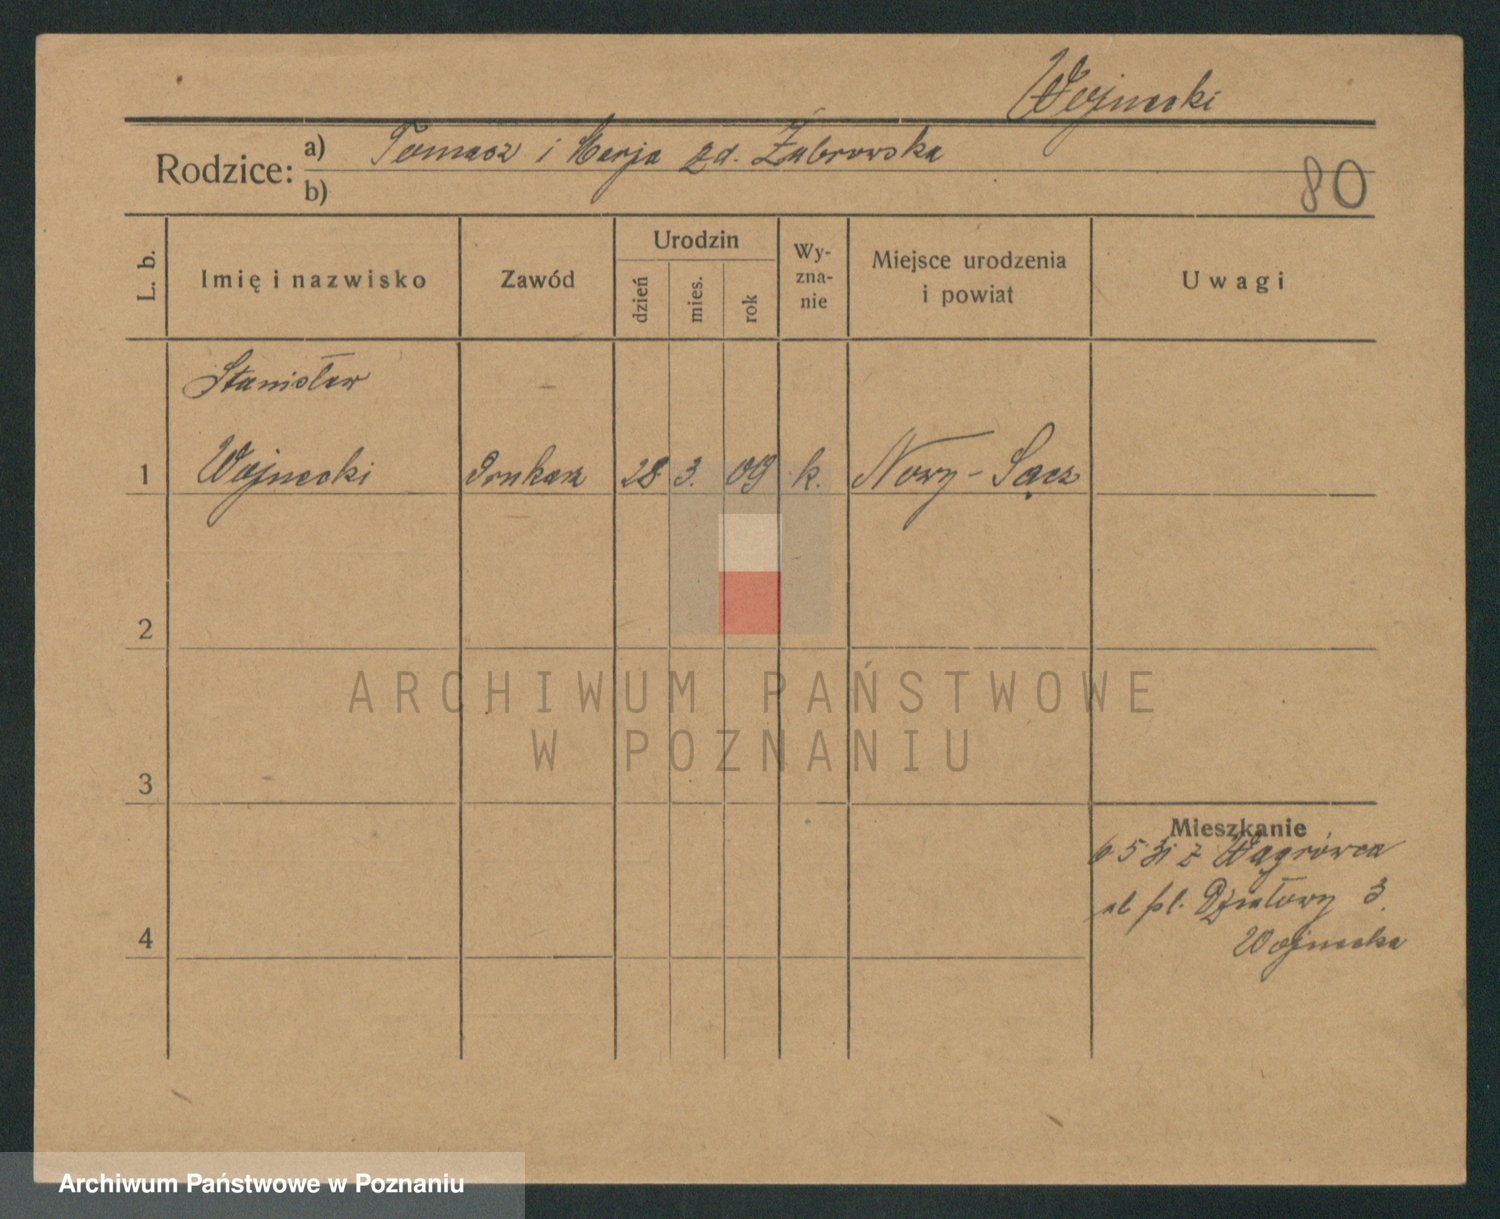 Wojnecki
Rodzice: a) Tomasz i Marja zd. Żubrowska
b)
80
L. b.
Imię i nazwisko
Zawód
Urodzin
dzień
mies.
rok
Wy-
zna-
nie
Miejsce urodzenia
i powiat
Uwagi
Stanisław
1 Wojnecki Drukarz 28 3. 09 k. Nowy-Sącz
2
ARCHIWUM PAŃSTWOWE
W POZNANIU
3
Mieszkanie
6 5 31 z Wągrówca
pl. Działowy 3.
Wojnecka
4
Archiwum Państwowe w Poznaniu